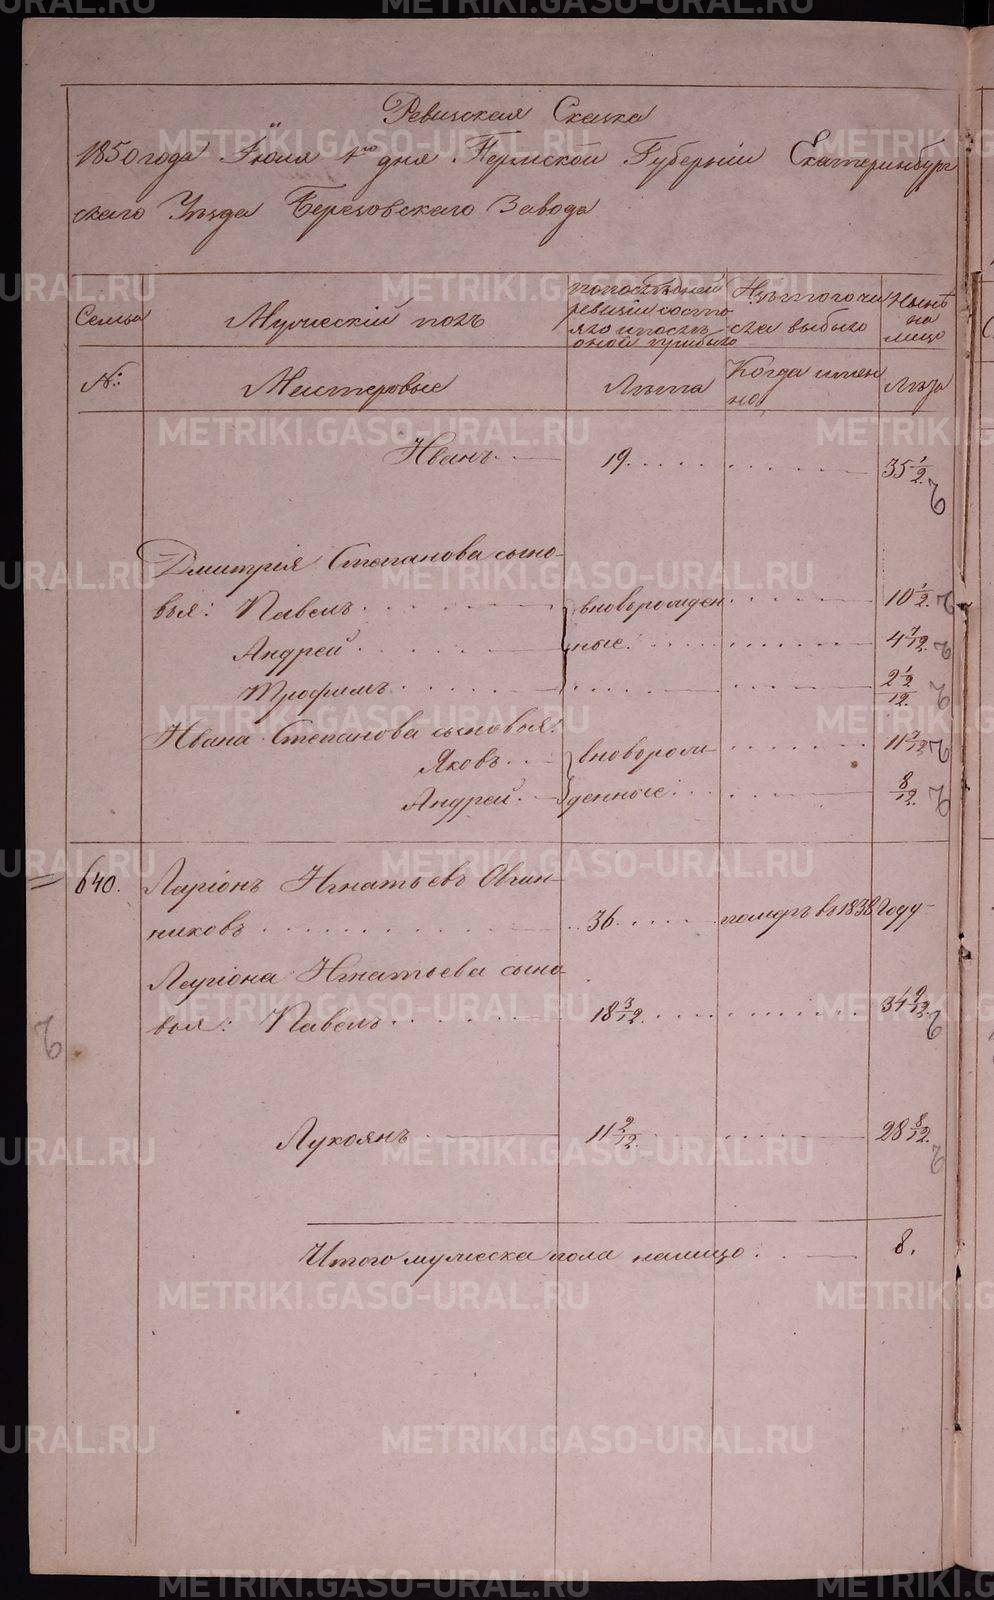 Ревизская Сказка
1850 года Іюля 1го дня Пермской Губерніи Екатеринбург
скаго Уѣзда Березовскаго Завода
Семьи
Мужескій полъ
по послѣдней
ревизіи состо
яло и послѣ
оной прибыло
Изъ того чи
сла выбыло
Нынѣ
на
лицо
№:
Мастеровые
Лѣта
Когда имен
но.
Лѣта
Иванъ. 19. 35 1/2.
Дмитрія Степанова сыно-
вья: Павелъ. вноворожден 10 1/2.
Андрей. ные. 4 7/12.
Трофимъ. 2 1/2/12.
Ивана Степанова сыновья:
Яковъ. вноворож 11 7/12
Андрей. денные. 8/12.
640. Ларіонъ Игнатьевъ Овчин-
никовъ 36. померъ въ 1838 Году
Ларіона Игнатьева сыно
вья: Павелъ. 18 3/12. 34 9/12.
Лукоянъ 11 2/12. 28 8/12.
Итого мужеска пола налицо. 8.
METRIKI.GASO-URAL.RU